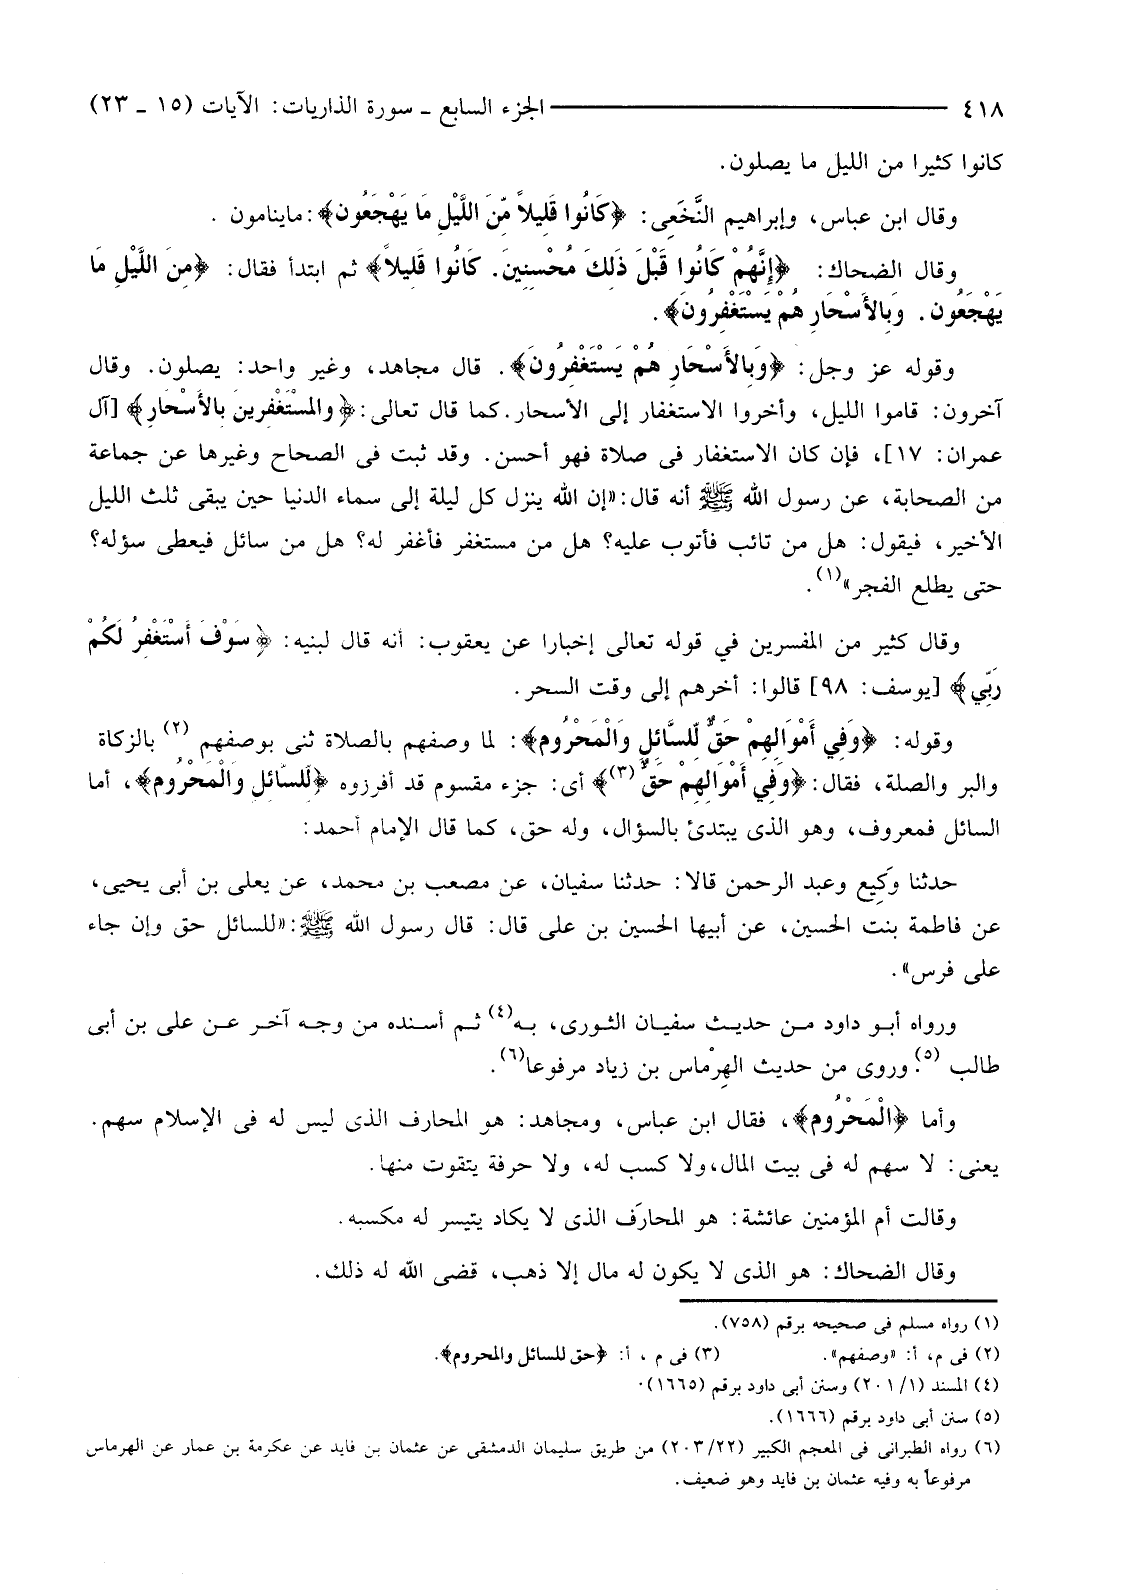 ٤١٨ ـــــــــــــ الجزء السابع ـ سورة الذاريات: الآيات (١٥ ـ ٢٣)
كانوا كثيرا من الليل ما يصلون.
وقال ابن عباس، وإبراهيم النَّخَعِى: ﴿كَانُوا قَلِيلاً مِّنَ اللَّيْلِ مَا يَهْجَعُون﴾:ماينامون .
وقال الضحاك: ﴿إِنَّهُمْ كَانُوا قَبْلَ ذَلِكَ مُحْسِنِينَ. كَانُوا قَلِيلاً﴾ ثم ابتدأ فقال: ﴿مِنَ اللَّيْلِ مَا
يَهْجَعُون. وَبِالأَسْحَارِ هُمْ يَسْتَغْفِرُونَ﴾.
وقوله عز وجل: ﴿وَبِالأَسْحَارِ هُمْ يَسْتَغْفِرُونَ﴾. قال مجاهد، وغير واحد: يصلون. وقال
آخرون: قاموا الليل، وأخروا الاستغفار إلى الأسحار.كما قال تعالى:﴿والْمُسْتَغْفِرِينَ بِالأَسْحَارِ﴾ [آل
عمران: ١٧]، فإن كان الاستغفار فى صلاة فهو أحسن. وقد ثبت فى الصحاح وغيرها عن جماعة
من الصحابة، عن رسول الله ﷺ أنه قال:«إن الله ينزل كل ليلة إلى سماء الدنيا حين يبقى ثلث الليل
الأخير، فيقول: هل من تائب فأتوب عليه؟ هل من مستغفر فأغفر له؟ هل من سائل فيعطى سؤله؟
حتى يطلع الفجر»(١).
وقال كثير من المفسرين في قوله تعالى إخبارا عن يعقوب: أنه قال لبنيه: ﴿سَوْفَ أَسْتَغْفِرُ لَكُمْ
رَبِّي﴾ [يوسف: ٩٨] قالوا: أخرهم إلى وقت السحر.
وقوله: ﴿وَفِي أَمْوَالِهِمْ حَقٌّ لِّلسَّائِلِ وَالْمَحْرُوم﴾: لما وصفهم بالصلاة ثنى بوصفهم (٢) بالزكاة
والبر والصلة، فقال:﴿وَفِي أَمْوَالِهِمْ حَقٌّ (٣)﴾ أى: جزء مقسوم قد أفرزوه ﴿لِّلسَّائِلِ وَالْمَحْرُوم﴾، أما
السائل فمعروف، وهو الذى يبتدئ بالسؤال، وله حق، كما قال الإمام أحمد:
حدثنا وَكِيع وعبد الرحمن قالا: حدثنا سفيان، عن مصعب بن محمد، عن يعلى بن أبى يحيى،
عن فاطمة بنت الحسين، عن أبيها الحسين بن على قال: قال رسول الله ﷺ:«للسائل حق وإن جاء
على فرس».
ورواه أبو داود من حديث سفيان الثورى، به(٤) ثم أسنده من وجه آخر عن على بن أبى
طالب (٥). وروى من حديث الهِرْماس بن زياد مرفوعا(٦).
وأما ﴿الْمَحْرُوم﴾، فقال ابن عباس، ومجاهد: هو المحارف الذى ليس له فى الإسلام سهم.
يعنى: لا سهم له فى بيت المال،ولا كسب له، ولا حرفة يتقوت منها.
وقالت أم المؤمنين عائشة: هو المحارَف الذى لا يكاد يتيسر له مكسبه.
وقال الضحاك: هو الذى لا يكون له مال إلا ذهب، قضى الله له ذلك.
(١) رواه مسلم فى صحيحه برقم (٧٥٨).
(٢) فى م، أ: «وصفهم». (٣) فى م ، أ: ﴿حق للسائل والمحروم﴾.
(٤) المسند (١/ ٢٠١) وسنن أبى داود برقم (١٦٦٥).
(٥) سنن أبى داود برقم (١٦٦٦).
(٦) رواه الطبرانى فى المعجم الكبير (٢٢/ ٢٠٣) من طريق سليمان الدمشقى عن عثمان بن فايد عن عكرمة بن عمار عن الهرماس
مرفوعاً به وفيه عثمان بن فايد وهو ضعيف.